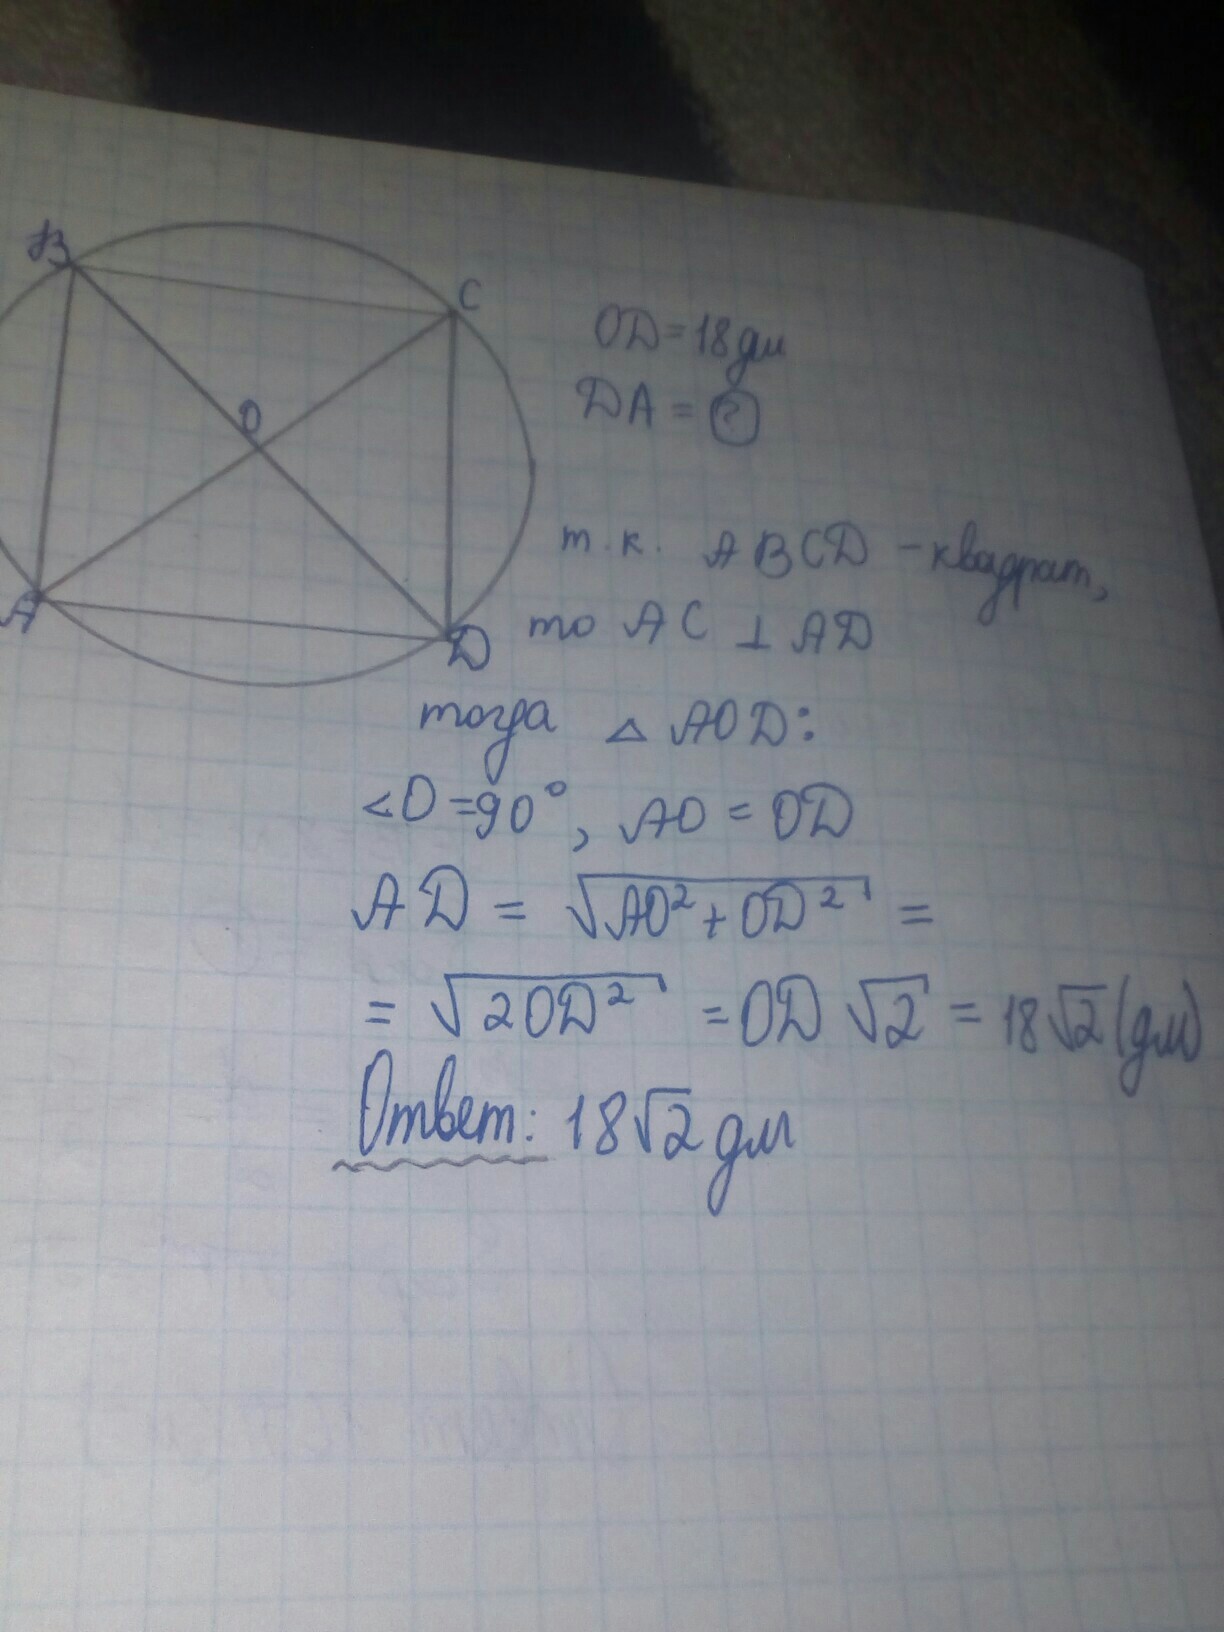 B
C
O
A
D
OD=18дм
DA = ?
т.к. ABCD - квадрат,
то AC ⊥ AD
тогда △ AOD:
∠O=90°, AO = OD
AD = √AO²+OD² =
= √2OD² = OD √2 = 18√2 (дм)
Ответ: 18√2 дм